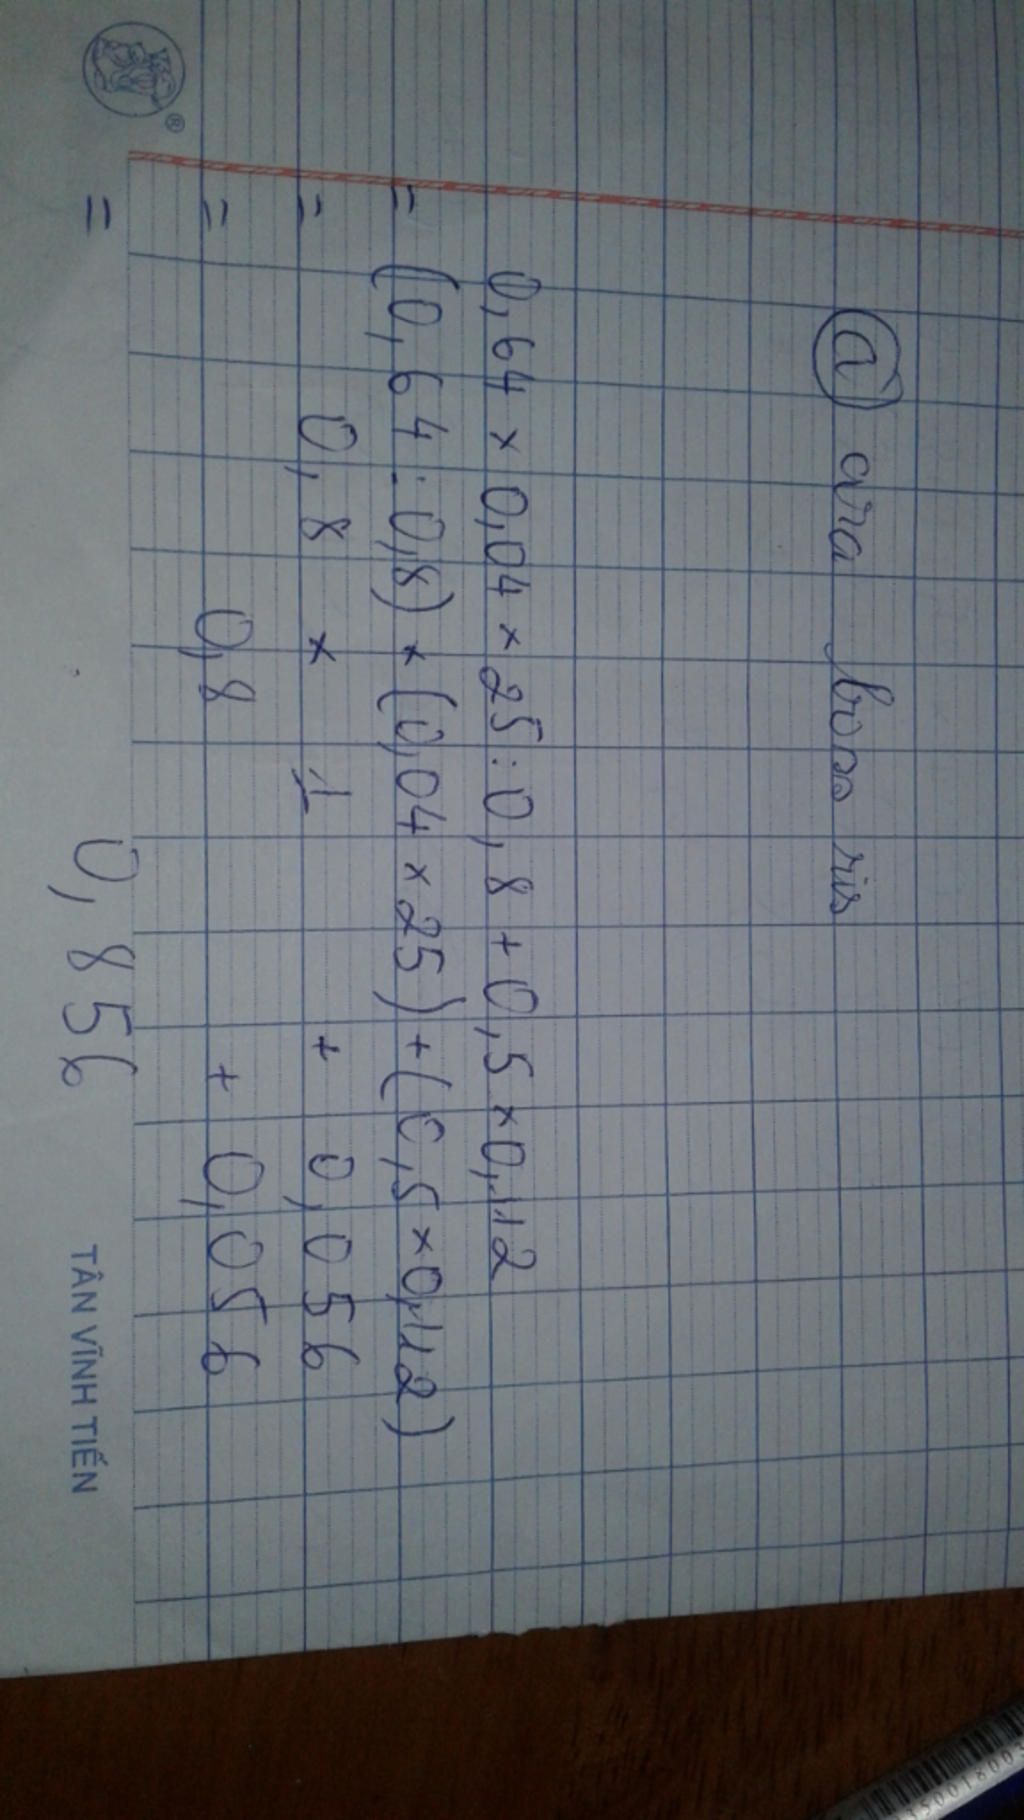 a ara boss ris
0,64 × 0,04 × 25 : 0,8 + 0,5 × 0,112
= (0,64 : 0,8) × (0,04 × 25) + (0,5 × 0,112)
= 0,8 × 1 + 0,056
= 0,8 + 0,056
= 0,856
TÂN VĨNH TIẾN
®